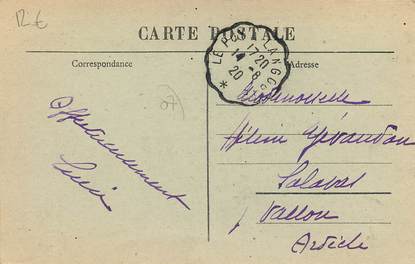 12 €
CARTE POSTALE
Correspondance
Adresse
LE PUY LANGOG
17 20
14 -8
20
*
07
Affectueusement
Lucie
Mademoiselle
Hélène Gévaudan
Salavas
Vallon
Ardèche